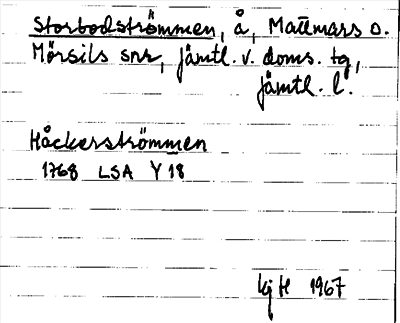 Storbodströmmen, å, Mattmars o.
Mörsils snr, Jämtl. v. doms. tg,
Jämtl. l.
Håckerströmmen
1768 LSA Y 18
KjH 1967